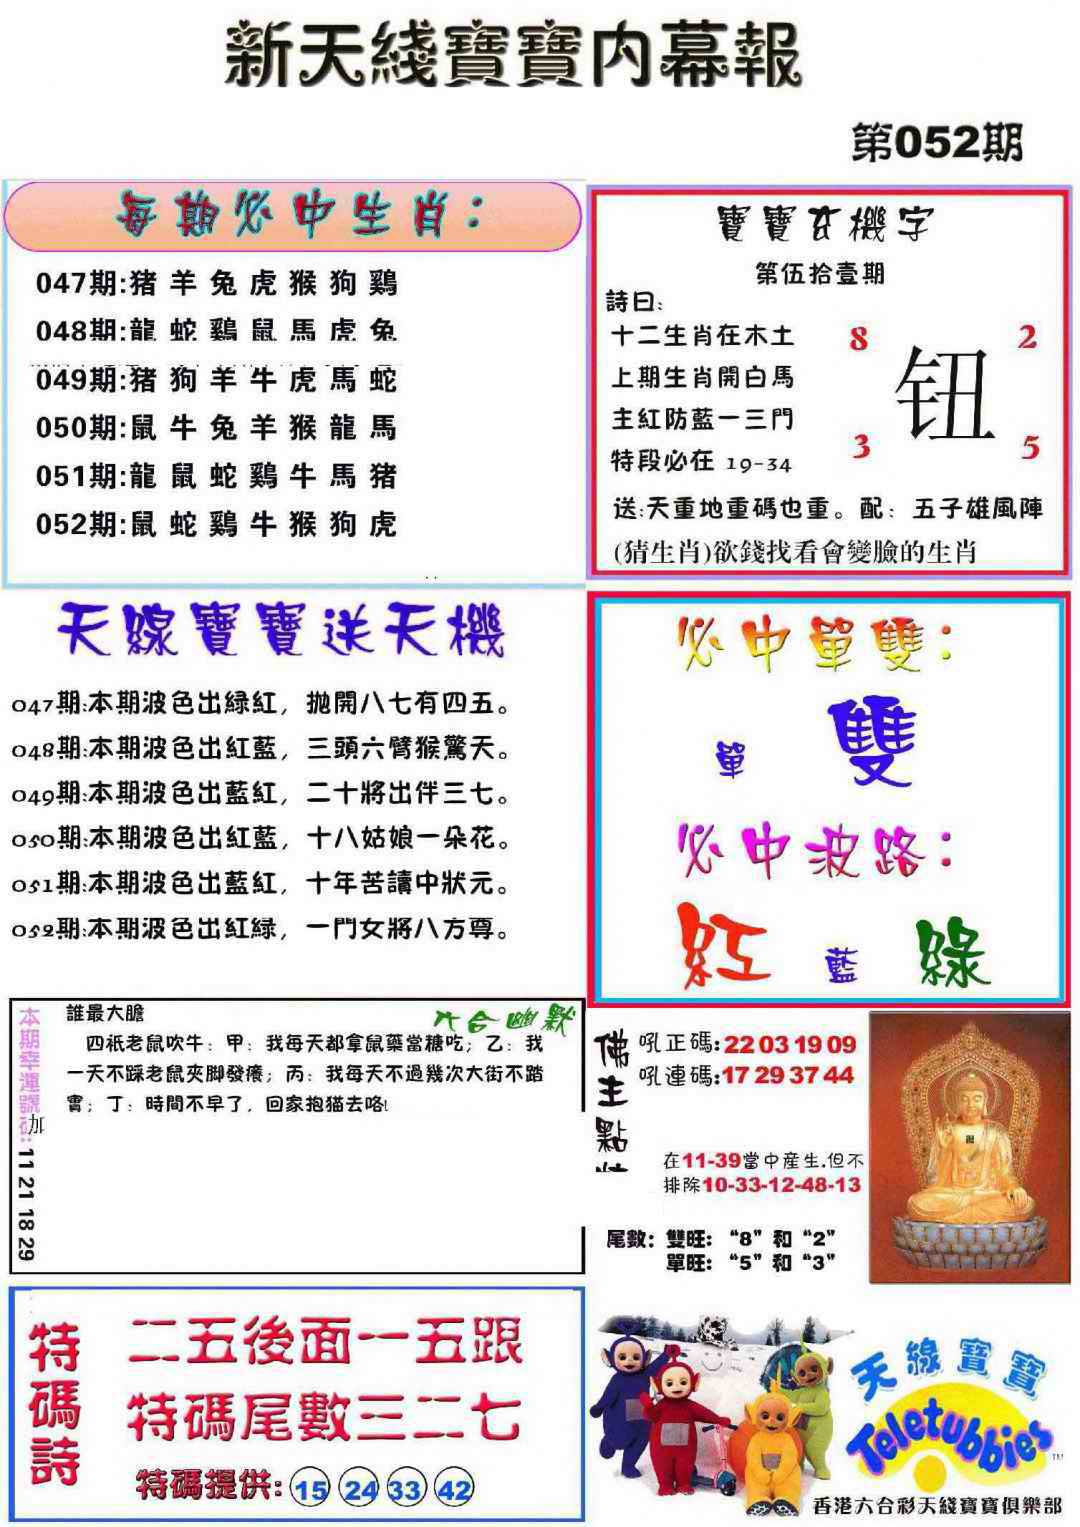 新天綫寶寶内幕報
第052期
每期必中生肖：
047期:猪羊兔虎猴狗鷄
048期:龍蛇鷄鼠馬虎兔
049期:猪狗羊牛虎馬蛇
050期:鼠牛兔羊猴龍馬
051期:龍鼠蛇鷄牛馬猪
052期:鼠蛇鷄牛猴狗虎
寶寶玄機字
第伍拾壹期
詩曰:
十二生肖在木土
上期生肖開白馬
主紅防藍一三門
特段必在 19-34
8 2
钮
3 5
送:天重地重碼也重。配：五子雄風陣
(猜生肖)欲錢找看會變臉的生肖
天線寶寶送天機
047期:本期波色出緑紅，拋開八七有四五。
048期:本期波色出紅藍，三頭六臂猴驚天。
049期:本期波色出藍紅，二十將出伴三七。
050期:本期波色出紅藍，十八姑娘一朵花。
051期:本期波色出藍紅，十年苦讀中狀元。
052期:本期波色出紅緑，一門女將八方尊。
必中單雙：
單 雙
必中波路：
紅 藍 綠
本期幸運號碼: 11 21 18 29
加
六合幽默
誰最大膽
四祇老鼠吹牛：甲：我每天都拿鼠藥當糖吃；乙：我
一天不踩老鼠夾脚發癢；丙：我每天不過幾次大街不踏
實；丁：時間不早了，回家抱猫去咯!
佛主點
吼正碼:22 03 19 09
吼連碼:17 29 37 44
在11-39當中産生.但不
排除10-33-12-48-13
尾數：雙旺：“8”和“2”
單旺：“5”和“3”
特碼詩
二五後面一五跟
特碼尾數三二七
特碼提供: 15 24 33 42
天線寶寶
Teletubbies
TM
香港六合彩天綫寶寶俱樂部